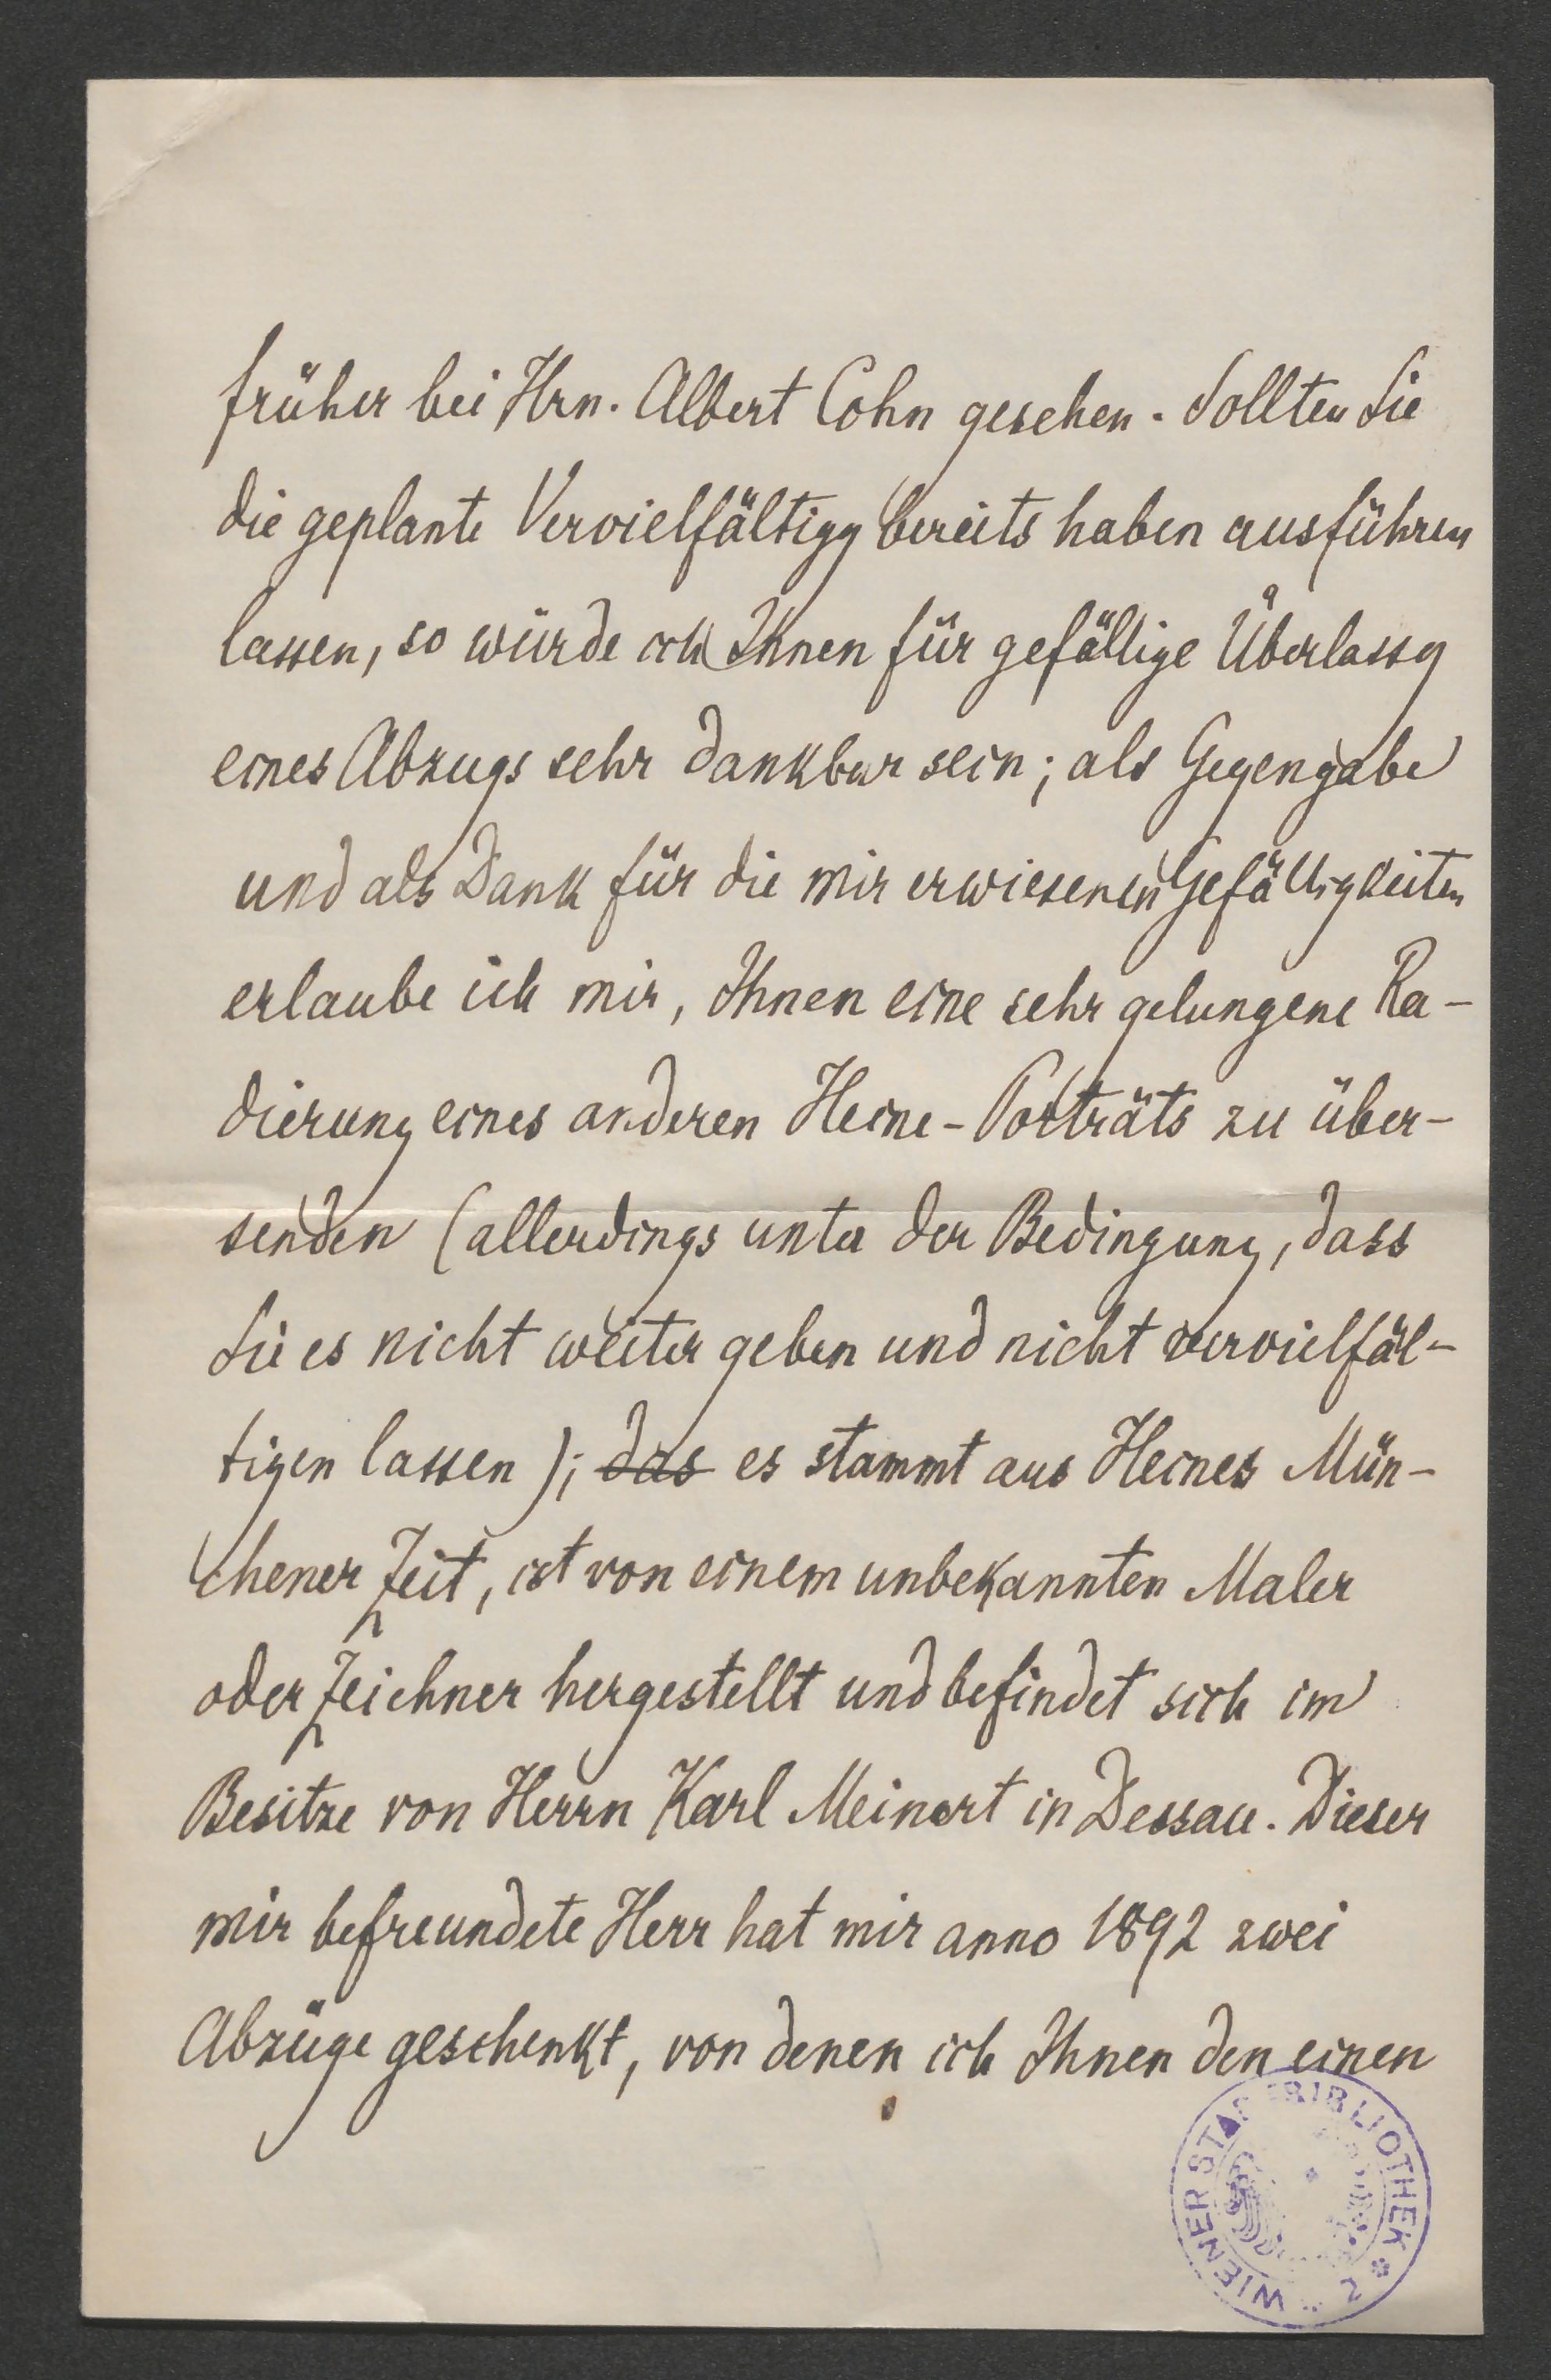 früher bei Hrn. Albert Cohn gesehen. Sollten Sie
die geplante Vervielfältigg bereits haben ausführen
lassen, so würde ich Ihnen für gefällige Überlassg
eines Abzugs sehr dankbar sein; als Gegengabe
und als Dank für die mir erwiesenen Gefälligkeiten
erlaube ich mir, Ihnen eine sehr gelungene Ra-
dierung eines anderen Heine-Porträts zu über-
senden (allerdings unter der Bedingung, dass
Sie es nicht weiter geben und nicht vervielfäl-
tigen lassen); das es stammt aus Heines Mün-
chener Zeit, ist von einem unbekannten Maler
oder Zeichner hergestellt und befindet sich im
Besitze von Herrn Karl Meinert in Dessau. Dieser
mir befreundete Herr hat mir anno 1892 zwei
Abzüge geschenkt, von denen ich Ihnen den einen
WIENER STADTBIBLIOTHEK * 2 *